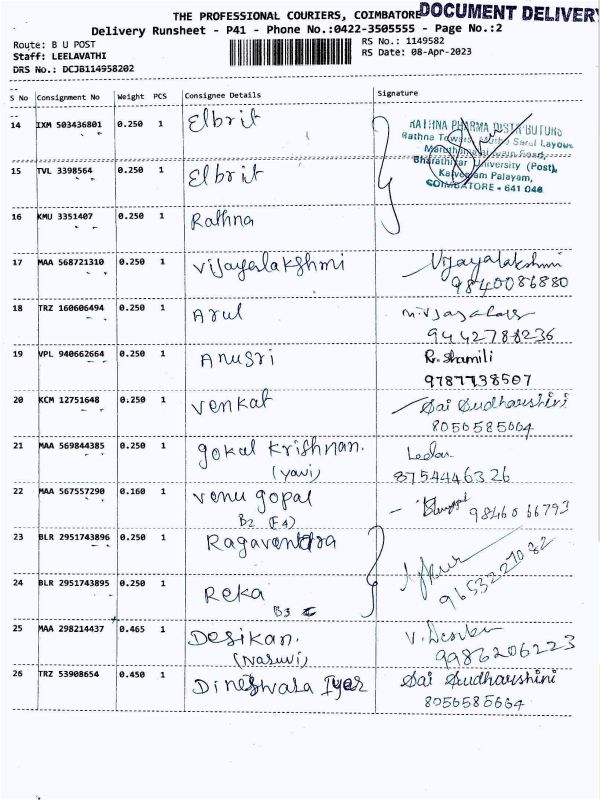 THE PROFESSIONAL COURIERS, COIMBATORE DOCUMENT DELIVERY
Delivery Runsheet - P41 - Phone No.:0422-3505555 - Page No.:2
Route: B U POST
RS No.: 1149582
Staff: LEELAVATHI
RS Date: 08-Apr-2023
DRS No.: DCJB114958202
S No Consignment No Weight PCS Consignee Details Signature
14 IXM 503436801 0.250 1 Elbrit
RATHNA PHARMA DISTRIBUTORS
Rathna Towers, Muthu Saral Layout
Maruthamalai Main Road,
Bharathiyar University (Post),
Kalveeram Palayam,
COIMBATORE - 641 046
15 TVL 3398564 0.250 1 Elbrit
16 KMU 3351407 0.250 1 Rathna
17 MAA 568721310 0.250 1 Vijayalakshmi Vijayalakshmi
9840086880
18 TRZ 160606494 0.250 1 Arul
9442788236
19 VPL 940662664 0.250 1 Anusri R. Shamili
9787738507
20 KCM 12751648 0.250 1 Venkat Sai Sudharshini
8056585664
21 MAA 569844385 0.250 1 gokal Krishnan.
(yavi) 8754446326
22 MAA 567557290 0.160 1 Venu gopal 9846066793
B2 (F4)
23 BLR 2951743896 0.250 1 Ragavendra
9653227032
24 BLR 2951743895 0.250 1 Reka
B3
25 MAA 298214437 0.465 1 Desikan.
(Naruvi) 9986206223
26 TRZ 53908654 0.450 1 Dineshvara Iyer Sai Sudharshini
8056585664